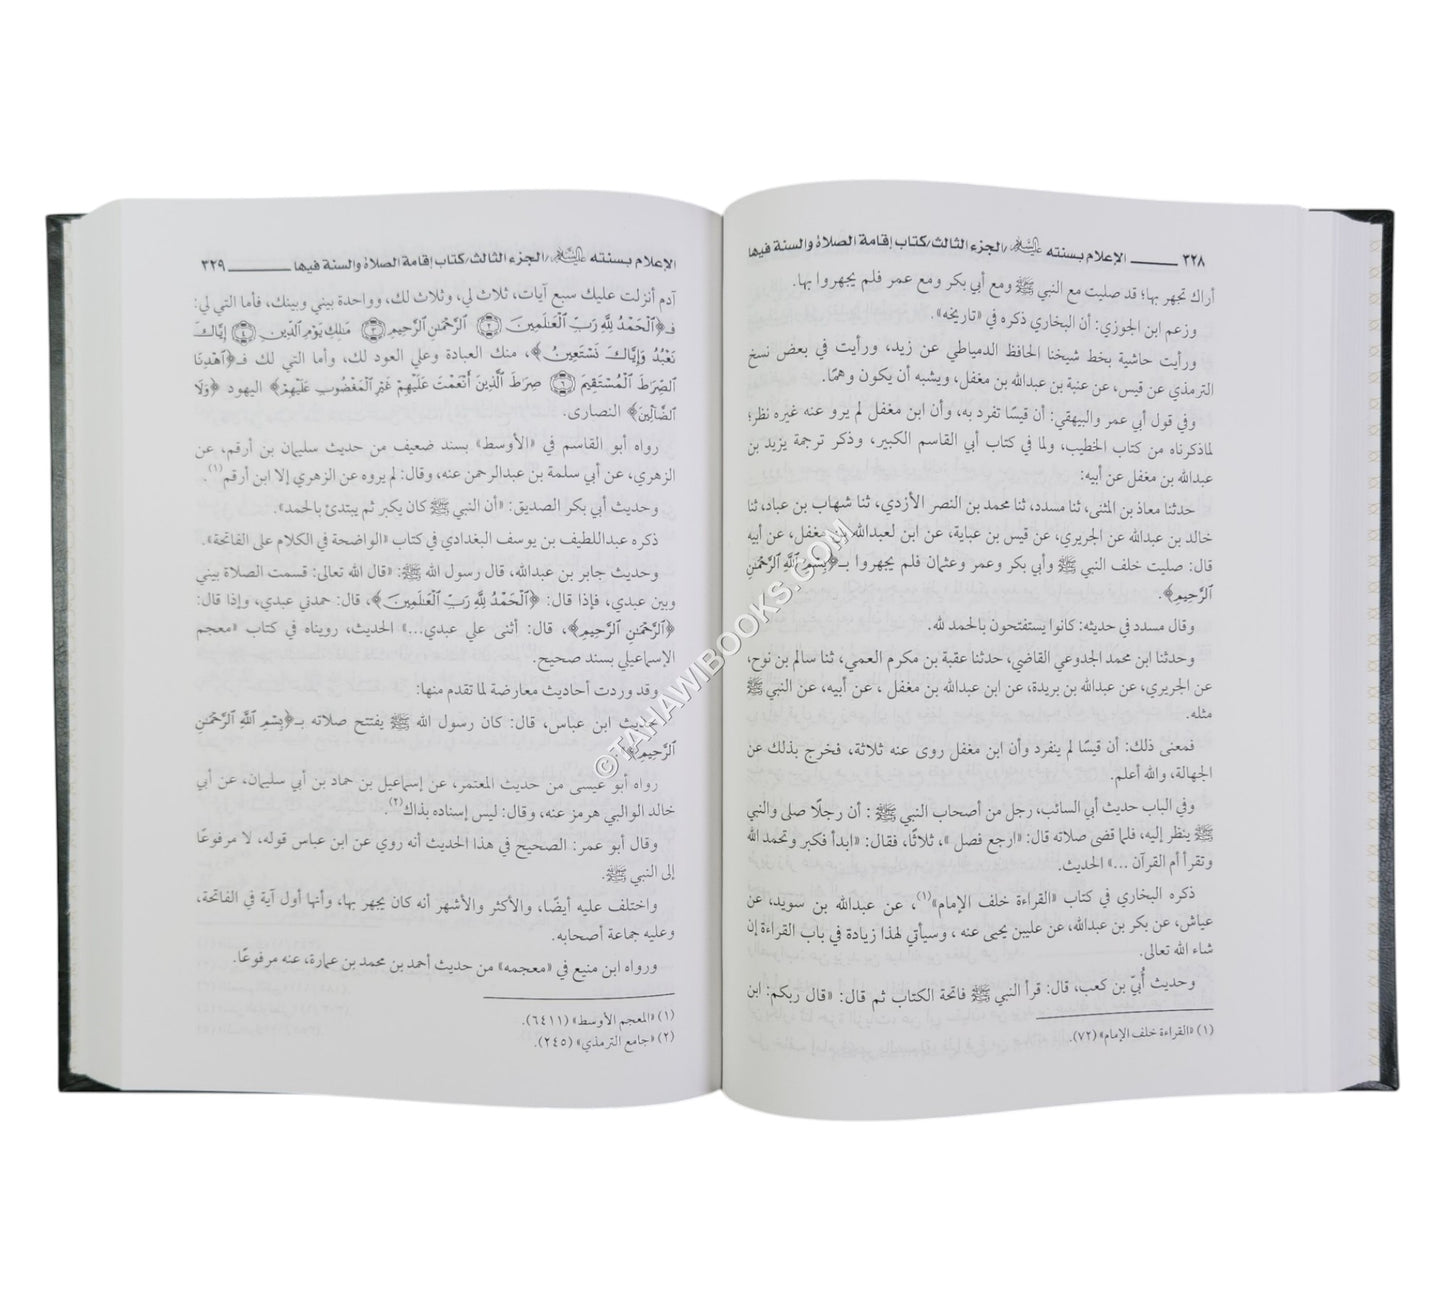 ٣٢٨ الإعلام بسنته عليه السلام/الجزء الثالث/كتاب إقامة الصلاة والسنة فيها
أراك تجهر بها؛ قد صليت مع النبي ﷺ ومع أبي بكر ومع عمر فلم يجهروا بها.
وزعم ابن الجوزي: أن البخاري ذكره في «تاريخه».
ورأيت حاشية بخط شيخنا الحافظ الدمياطي عن زيد، ورأيت في بعض نسخ
الترمذي عن قيس، عن عنبة بن عبدالله بن مغفل، ويشبه أن يكون وهمًا.
وفي قول أبي عمر والبيهقي: أن قيسًا تفرد به، وأن ابن مغفل لم يرو عنه غيره نظر؛
لماذكرناه من كتاب الخطيب، ولما في كتاب أبي القاسم الكبير، وذكر ترجمة يزيد بن
عبدالله بن مغفل عن أبيه:
حدثنا معاذ بن المثنى، ثنا مسدد، ثنا محمد بن النصر الأزدي، ثنا شهاب بن عباد، ثنا
خالد بن عبدالله عن الجريري، عن قيس بن عباية، عن ابن لعبدالله بن مغفل، عن أبيه
قال: صليت خلف النبي ﷺ وأبي بكر وعمر وعثمان فلم يجهروا بـ﴿بِسْمِ ٱللَّهِ ٱلرَّحْمَٰنِ
ٱلرَّحِيمِ﴾.
وقال مسدد في حديثه: كانوا يستفتحون بالحمد لله.
وحدثنا ابن محمد الجدوعي القاضي، حدثنا عقبة بن مكرم العمي، ثنا سالم بن نوح،
عن الجريري، عن عبدالله بن بريدة، عن ابن عبدالله بن مغفل ، عن أبيه، عن النبي ﷺ
مثله.
فمعنى ذلك: أن قيسًا لم ينفرد وأن ابن مغفل روى عنه ثلاثة، فخرج بذلك عن
الجهالة، والله أعلم.
وفي الباب حديث أبي السائب، رجل من أصحاب النبي ﷺ : أن رجلًا صلى والنبي
ﷺ ينظر إليه، فلما قضى صلاته قال: «ارجع فصل »، ثلاثًا، فقال: «ابدأ فكبر وتحمد الله
وتقرأ أم القرآن ...» الحديث.
ذكره البخاري في كتاب «القراءة خلف الإمام»(١)، عن عبدالله بن سويد، عن
عياش، عن بكر بن عبدالله، عن عليين يحيى عنه ، وسيأتي لهذا زيادة في باب القراءة إن
شاء الله تعالى.
وحديث أُبيّ بن كعب، قال: قرأ النبي ﷺ فاتحة الكتاب ثم قال: «قال ربكم: ابن
(١) «القراءة خلف الإمام» (٧٢).
الإعلام بسنته عليه السلام/الجزء الثالث/كتاب إقامة الصلاة والسنة فيها ٣٢٩
آدم أنزلت عليك سبع آيات، ثلاث لي، وثلاث لك، وواحدة بيني وبينك، فأما التي لي:
فـ﴿ٱلْحَمْدُ لِلَّهِ رَبِّ ٱلْعَٰلَمِينَ ٢ ٱلرَّحْمَٰنِ ٱلرَّحِيمِ ٣ مَٰلِكِ يَوْمِ ٱلدِّينِ ٤ إِيَّاكَ
نَعْبُدُ وَإِيَّاكَ نَسْتَعِينُ﴾، منك العبادة وعلي العود لك، وأما التي لك فـ﴿ٱهْدِنَا
ٱلصِّرَٰطَ ٱلْمُسْتَقِيمَ ٦ صِرَٰطَ ٱلَّذِينَ أَنْعَمْتَ عَلَيْهِمْ غَيْرِ ٱلْمَغْضُوبِ عَلَيْهِمْ﴾ اليهود ﴿وَلَا
ٱلضَّآلِّينَ﴾ النصارى.
رواه أبو القاسم في «الأوسط» بسند ضعيف من حديث سليمان بن أرقم، عن
الزهري، عن أبي سلمة بن عبدالرحمن عنه، وقال: لم يروه عن الزهري إلا ابن أرقم(١).
وحديث أبي بكر الصديق: «أن النبي ﷺ كان يكبر ثم يبتدئ بالحمد».
ذكره عبداللطيف بن يوسف البغدادي في كتاب «الواضحة في الكلام على الفاتحة».
وحديث جابر بن عبدالله، قال رسول الله ﷺ: «قال الله تعالى: قسمت الصلاة بيني
وبين عبدي، فإذا قال: ﴿ٱلْحَمْدُ لِلَّهِ رَبِّ ٱلْعَٰلَمِينَ﴾، قال: حمدني عبدي، وإذا قال:
﴿ٱلرَّحْمَٰنِ ٱلرَّحِيمِ﴾، قال: أثنى علي عبدي...» الحديث، رويناه في كتاب «معجم
الإسماعيلي بسند صحيح.
وقد وردت أحاديث معارضة لما تقدم منها:
حديث ابن عباس، قال: كان رسول الله ﷺ يفتتح صلاته بـ﴿بِسْمِ ٱللَّهِ ٱلرَّحْمَٰنِ
ٱلرَّحِيمِ﴾.
رواه أبو عيسى من حديث المعتمر، عن إسماعيل بن حماد بن أبي سليمان، عن أبي
خالد الوالبي هرمز عنه، وقال: ليس إسناده بذاك(٢).
وقال أبو عمر: الصحيح في هذا الحديث أنه روي عن ابن عباس قوله، لا مرفوعًا
إلى النبي ﷺ.
واختلف عليه أيضًا، والأكثر والأشهر أنه كان يجهر بها، وأنها أول آية في الفاتحة،
وعليه جماعة أصحابه.
ورواه ابن منيع في «معجمه» من حديث أحمد بن محمد بن عمارة، عنه مرفوعًا.
(١) «المعجم الأوسط» (٦٤١١).
(٢) «جامع الترمذي» (٢٤٥).
©TAHAWIBOOKS.COM